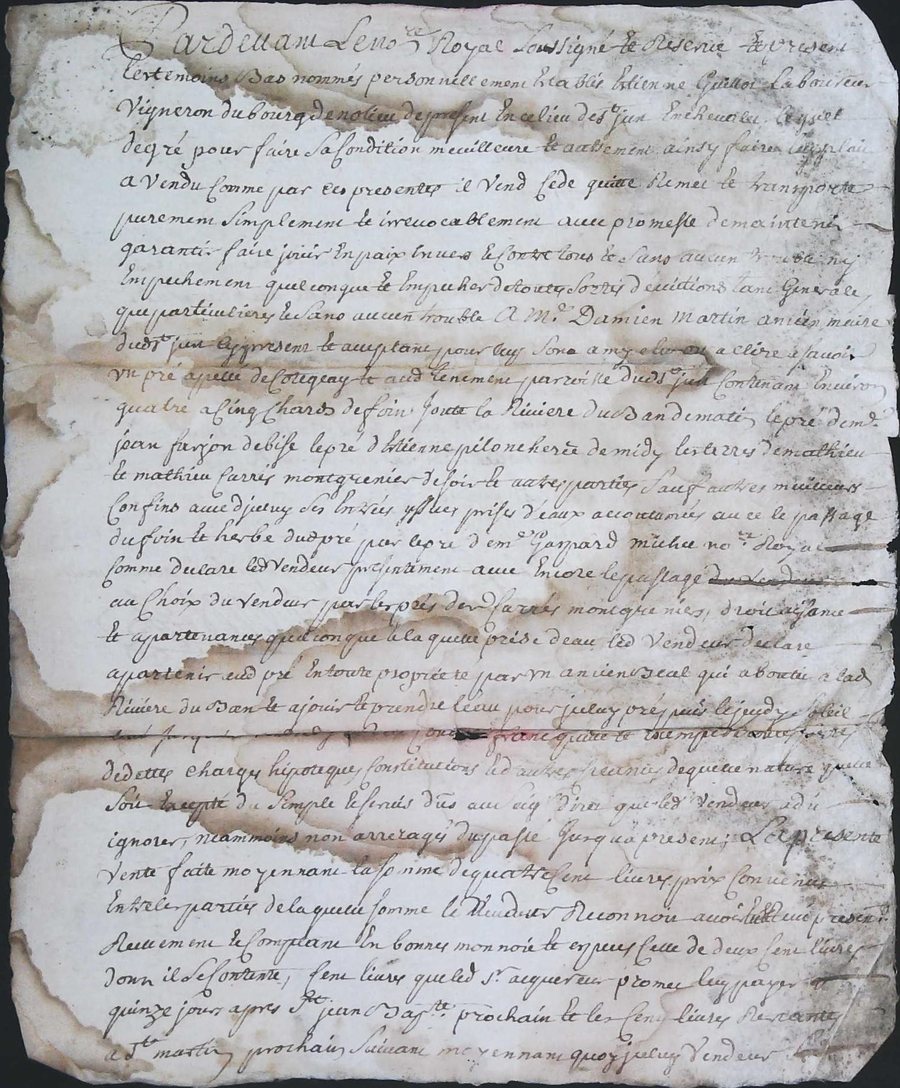 Pardevant Le no.re Royal Soussigné et Reservé et present
les temoins Bas nommés personnellement Establis Estienne Laboureur
Vigneron du bourg de nolieu de present En ce lieu de s.t jun En chevalet lequel
de gré pour faire sa Condition meuilleure et autrement ainsy faire luy plait
a Vendu Comme par ces presentes il Vend Cede quitte Remet et transporte
purement simplement et irrevocablement avec promesse de maintenir
garantir faire jouir En paix Envers et Contre tous et Sans aucun trouble ny
Empechement quelconque et Empecher de toutes Sortes d'evictions tant Generales
que particulieres et Sans aucun trouble A M.r Damien Martin ancien maire
dud s.t jun icy present et aceptant pour luy Sons amy elu ou a elire a savoir
Vn pré apellé de et aud tenement parroisse dud s.t jun Contenant Environ
quatre a Cinq Chards de foin Joute la Riviere du Ban de matin le pré de m.r
jean farjon de bise le pré d'Estienne de midy les terres de mathieu
et mathieu Carrés montgrenier de soir et autres parties Sauf autres meuilleurs
Confins avec d'jceluy Ses Entrées yssues prises d'eaux accoutumées avec le passage
du foin et herbe dud pré par le pré de m.r Gaspard michel no.re Royal
Comme declare led Vendeur presentement avec Encore le passage
au Choix du Vendeur par les prés desd Carrés montgrenier, droit aisance
et apartenances quelconque a la quelle prise d'eau, led Vendeur declare
apartenir aud pré En toute proprieté par Vn ancien Beal qui aboutit a lad
Riviere du Ban et a jouir et prendre l'eau pour jceluy pré puis le judy Soleil
franc quitte et
de dettes Charges hipoteques Constitutions et d'autres creances de quelle nature que ce
Soit Excepté du Simple et Servis dus au Seig.r direct que led Vendeur a dit
ignorer, neammoins non arreragés du passé Jusqu'a present; La presente
Vente faite moyennant la somme de quatre Cent livres prix Convenus
Entre les parties de la quelle somme le Vendeur Reconnoit avoir present
Reellement et Comptant En bonnes monnoie et especes Celle de deux Cent livres
dont il Se Contente, Cent livres que led s.r acquereur promet luy payer a
quinze jours apres S.t jean Bap.te prochain et les Cent livres Restantes
a S.t martin prochain Suivant moyennant quoy jceluy Vendeur